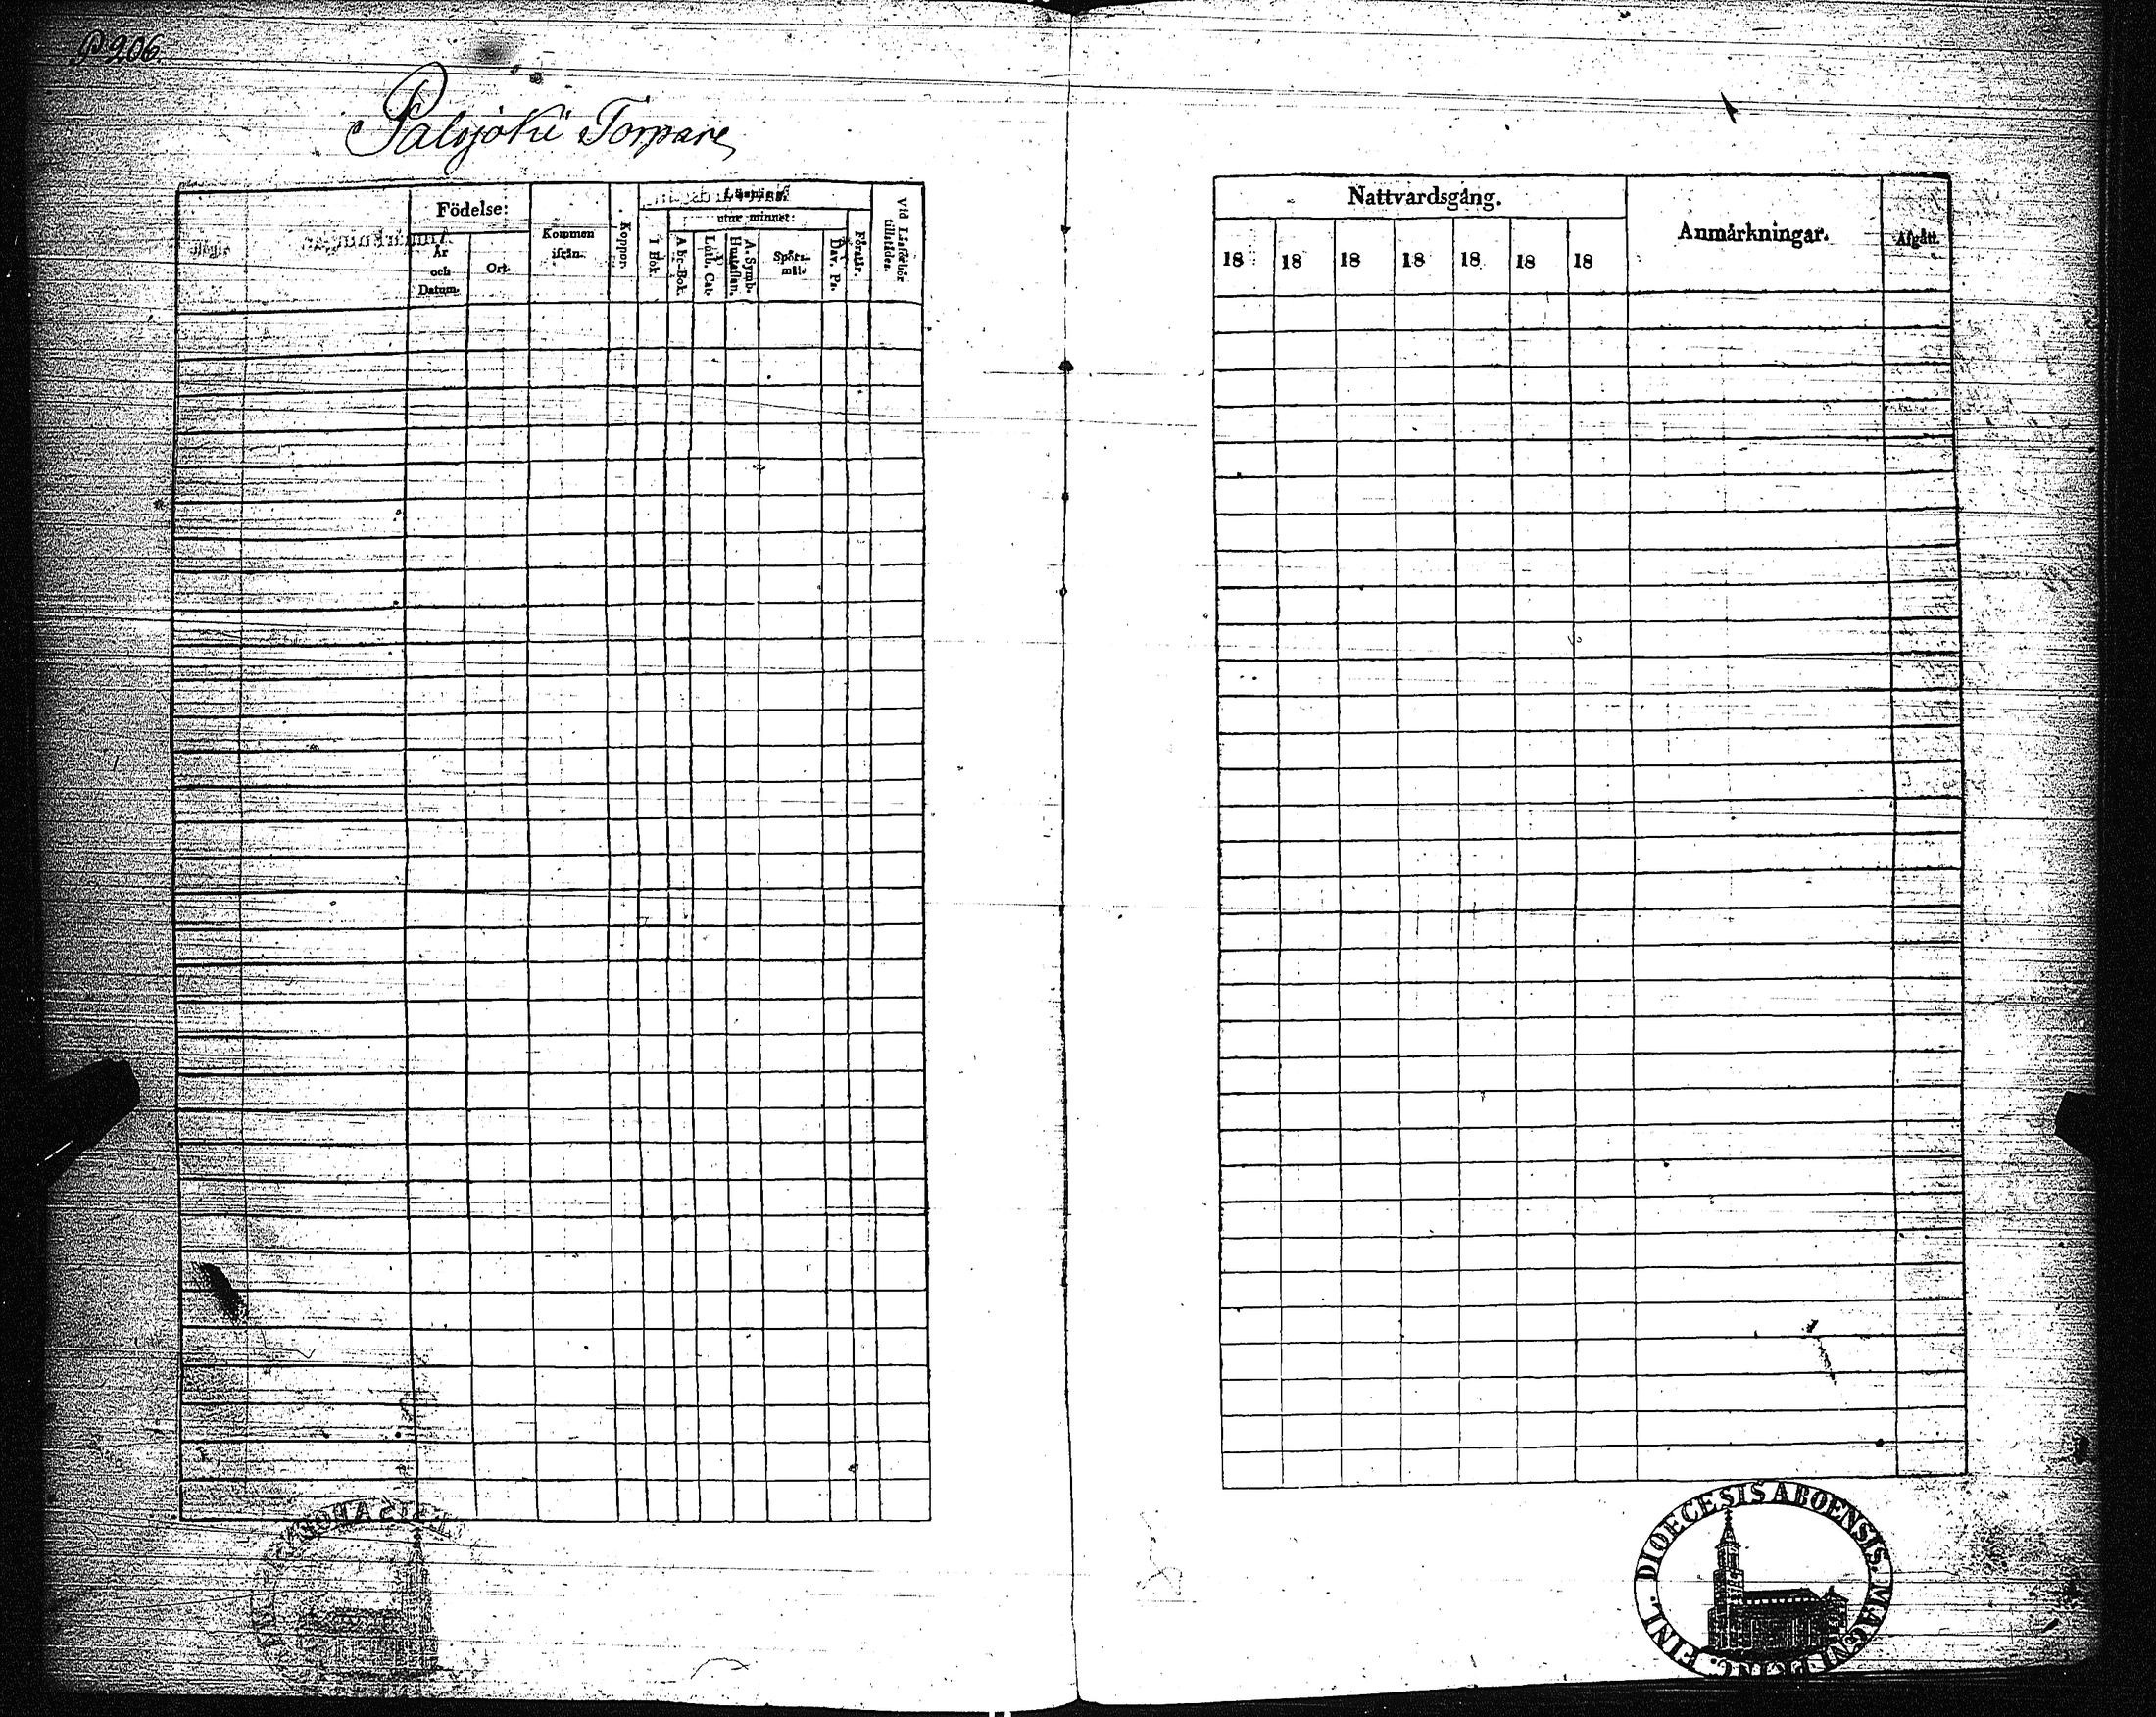 P 206.
Palojoki Torpare
Födelse:
År och Datum.
Ort.
Kommen ifrån.
Koppor.
Läsning
utur minnet:
I Bok.
Abc-Bok.
Luth. Cat.
A. Symb. Hustaflan.
Spörs-mål.
Dav. Ps.
Förstår.
Vid Läsförhör tillstädes.
Nattvardsgång.
18 18 18 18 18 18 18
Anmärkningar.
Afgått.
DIOECESIS ABOENSIS. MAGNI PRINC. FINL.